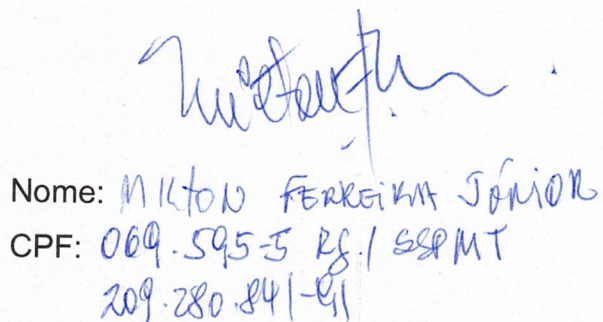 Nome: MILTON FERREIRA JÚNIOR
CPF: 069.595-5 RG./ SSPMT
209.280.841-91